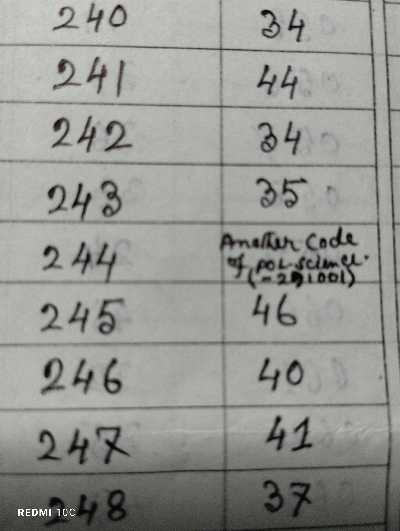 240 34
241 44
242 34
243 35
244 Another Code
of pol. science.
(-291001)
245 46
246 40
247 41
248 37
REDMI 10C